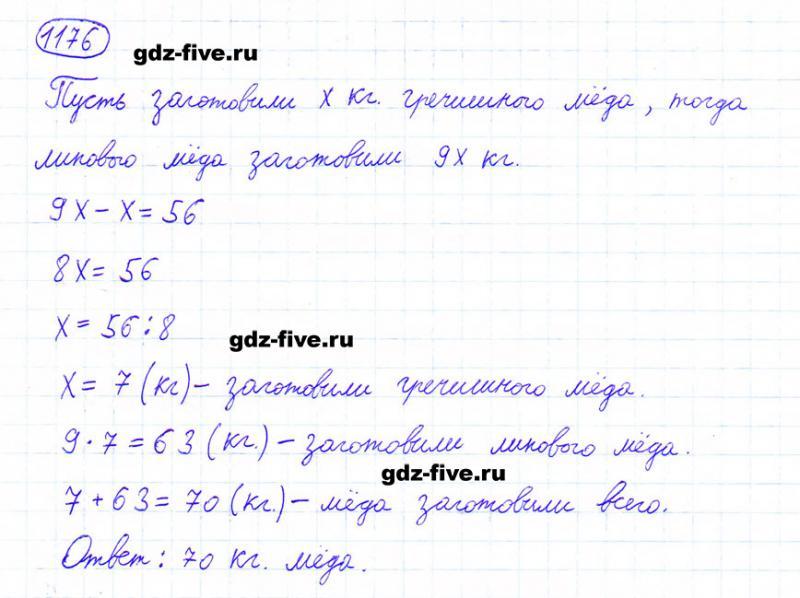 1176
gdz-five.ru
Пусть заготовили х кг. гречишного мёда, тогда
липового мёда заготовили 9х кг.
9х - х = 56
8х = 56
х = 56 : 8
gdz-five.ru
х = 7 (кг) - заготовили гречишного мёда.
9 · 7 = 63 (кг.) - заготовили липового мёда.
gdz-five.ru
7 + 63 = 70 (кг.) - мёда заготовили всего.
Ответ: 70 кг. мёда.